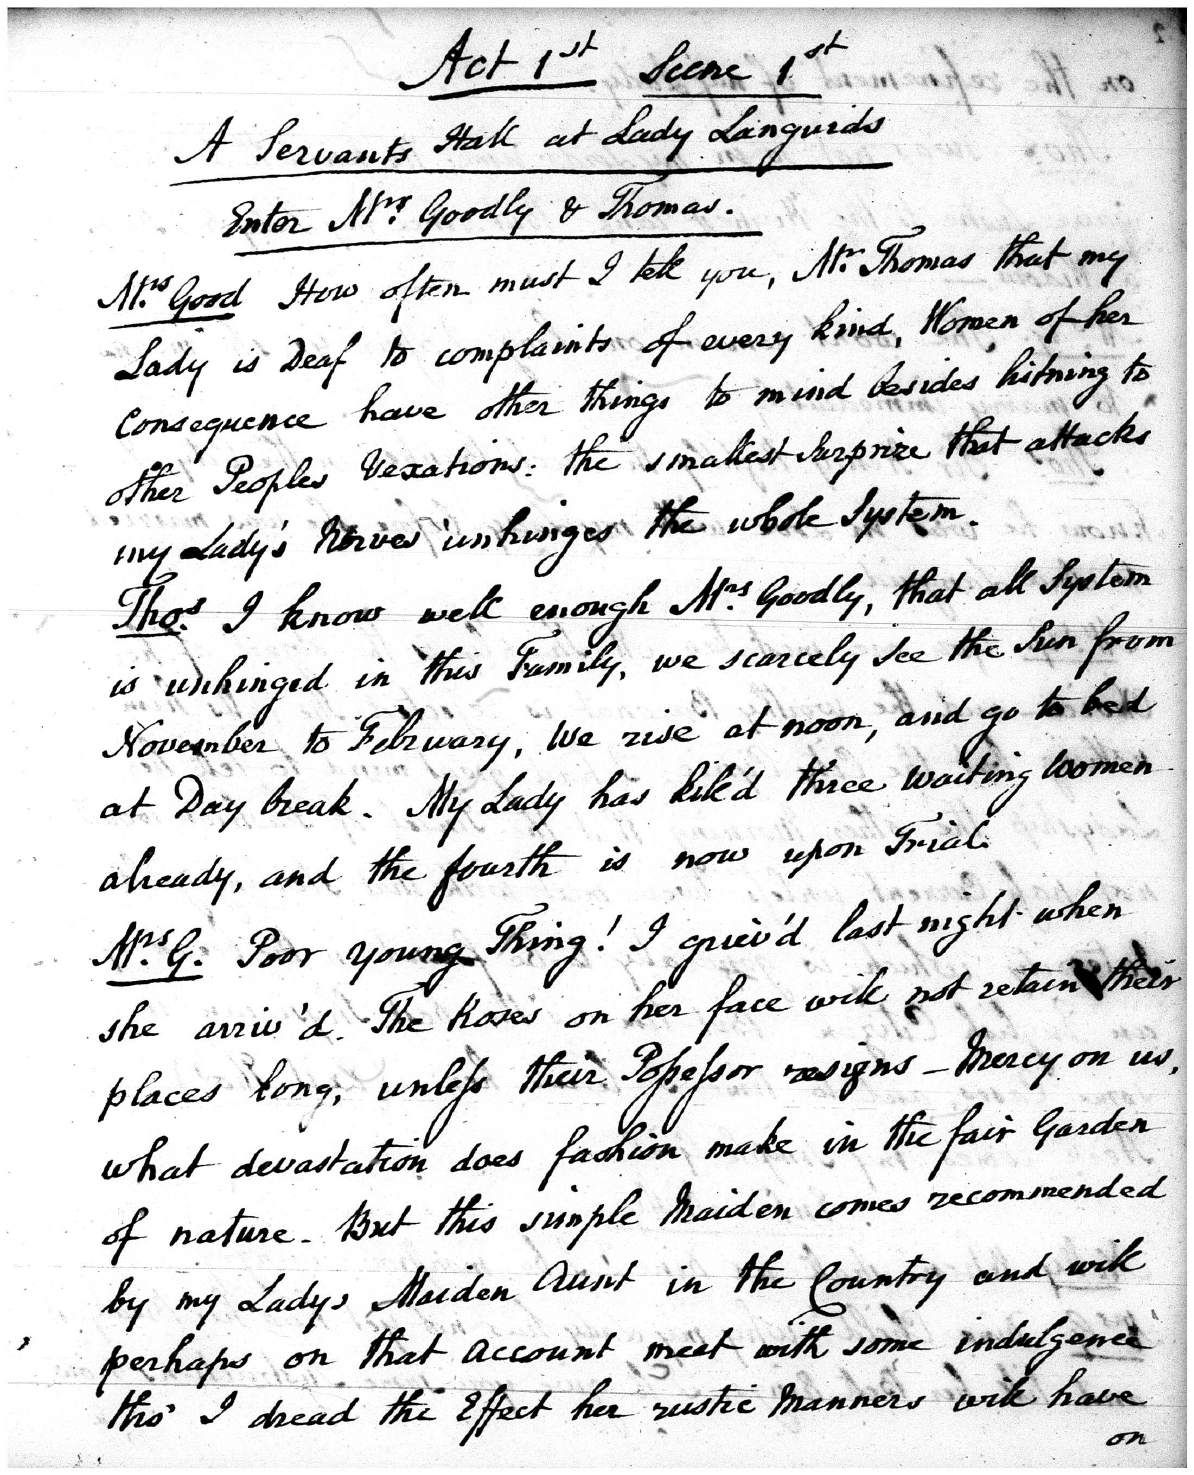 Act 1st Scene 1st
A Servants Hall at Lady Languids
Enter Mrs. Goodly & Thomas.
Mrs. Good How often must I tell you, Mr. Thomas that my
Lady is Deaf to complaints of every kind, Women of her
Consequence have other things to mind besides listning to
other Peoples Vexations: the smallest Surprize that attacks
my Lady's Nerves unhinges the whole System.
Thos. I know well enough Mrs. Goodly, that all System
is unhinged in this Family, we scarcely see the Sun from
November to February, we rise at noon, and go to bed
at Day break. My Lady has kill'd three waiting women
already, and the fourth is now upon Trial.
Mrs. G. Poor young Thing! I griev'd last night when
she arriv'd. The Roses on her face will not retain their
places long, unleſs their Poſseſsor resigns – Mercy on us,
what devastation does fashion make in the fair Garden
of nature. But this simple Maiden comes recommended
by my Ladys Maiden Aunt in the Country and will
perhaps on that account meet with some indulgence
tho' I dread the Effect her rustic Manners will have
on